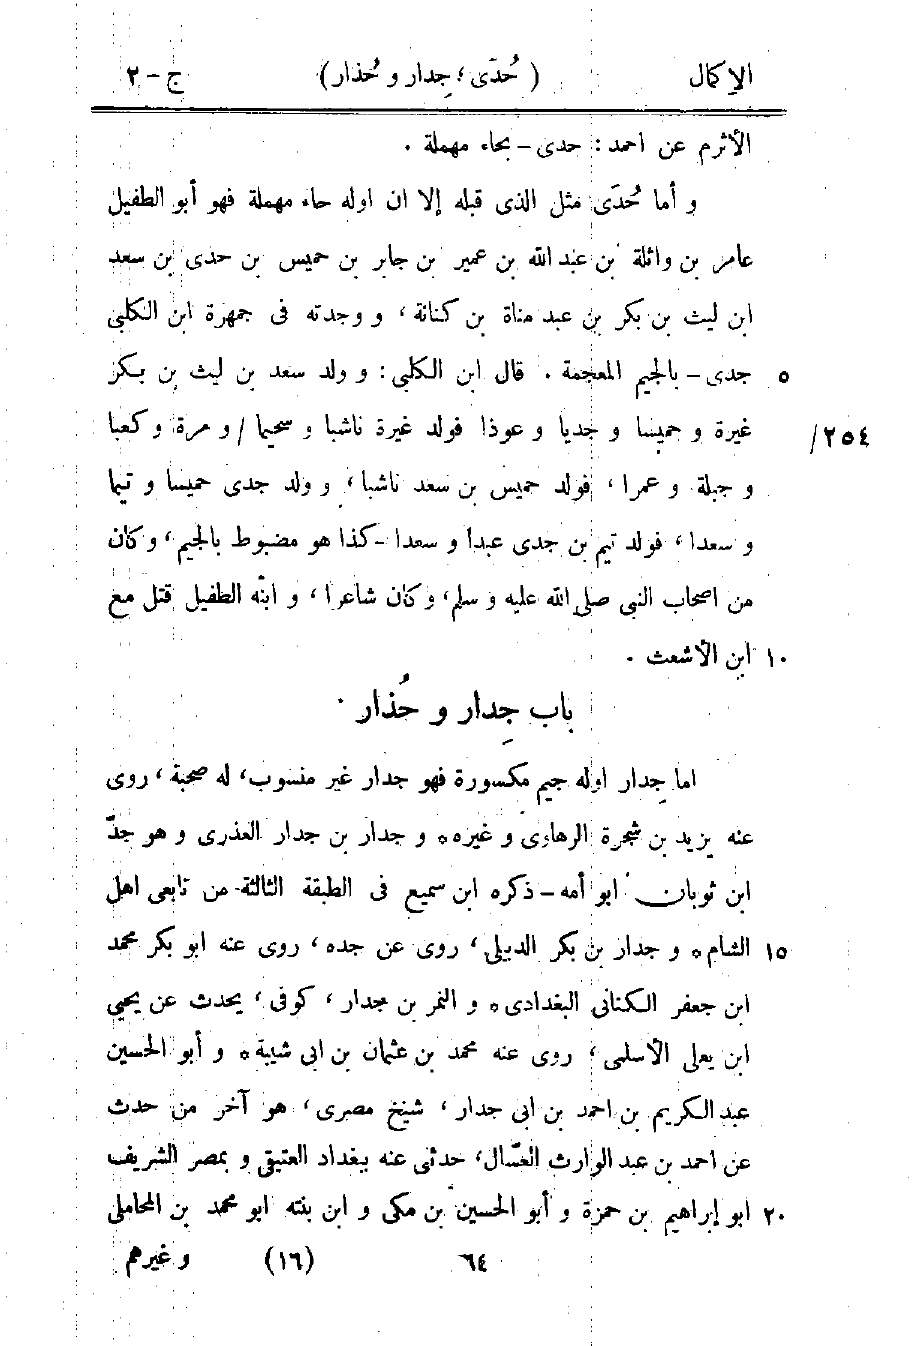 الإكمال ( حُدَى، جِدار و حُذار ) ج - ٢
الأثرم عن احمد : حدى - بحاء مهملة .
و أما حُدَى مثل الذى قبله إلا ان اوله حاء مهملة فهو أبو الطفيل
عامر بن واثلة بن عبد الله بن عمير بن جابر بن حميس بن حدى بن سعد
ابن ليث بن بكر بن عبد مناة بن كنانة ، و وجدته فى جمهرة ابن الكلبى
٥ جدى - بالجيم المعجمة . قال ابن الكلبي : و ولد سعد بن ليث بن بكر
٢٥٤/ غيرة و حميسا و جديا و عوذا فولد غيرة ناشبا و سحيما / و مرة و كعبا
و جبلة و عمرا ، فولد حميس بن سعد ناشبا ، و ولد جدى حميسا و تيما
و سعدا ، فولد تيم بن جدى عبدا و سعدا - كذا هو مضبوط بالجيم ، و كان
من اصحاب النبي صلى الله عليه و سلم ، و كان شاعرا ، و ابنه الطفيل قتل مع
١٠ ابن الأشعث .
باب جِدار و حُذار .
اما جِدار اوله جيم مكسورة فهو جدار غير منسوب ، له صحبة ، روى
عنه يزيد بن شجرة الرهاوى و غيره * و جدار بن جدار العذرى و هو جدّ
ابن ثوبان ابو أمه - ذكره ابن سميع فى الطبقة الثالثة من تابعى اهل
١٥ الشام * و جدار بن بكر الديلى ، روى عن جده ، روى عنه ابو بكر محمد
ابن جعفر الكنانى البغدادى * و النمر بن جدار ، كوفى ، يحدث عن يحيى
ابن يعلى الأسلمى ، روى عنه محمد بن عثمان بن ابى شيبة * و أبو الحسين
عبد الكريم بن احمد بن ابى جدار ، شيخ مصرى ، هو آخر من حدث
عن احمد بن عبد الوارث العسّال ، حدثنى عنه ببغداد العتيقى و بمصر الشريف
٢٠ ابو إبراهيم بن حمزة و أبو الحسين بن مكى و ابن بنته ابو محمد بن المحاملى
٦٤ (١٦) و غيرهم